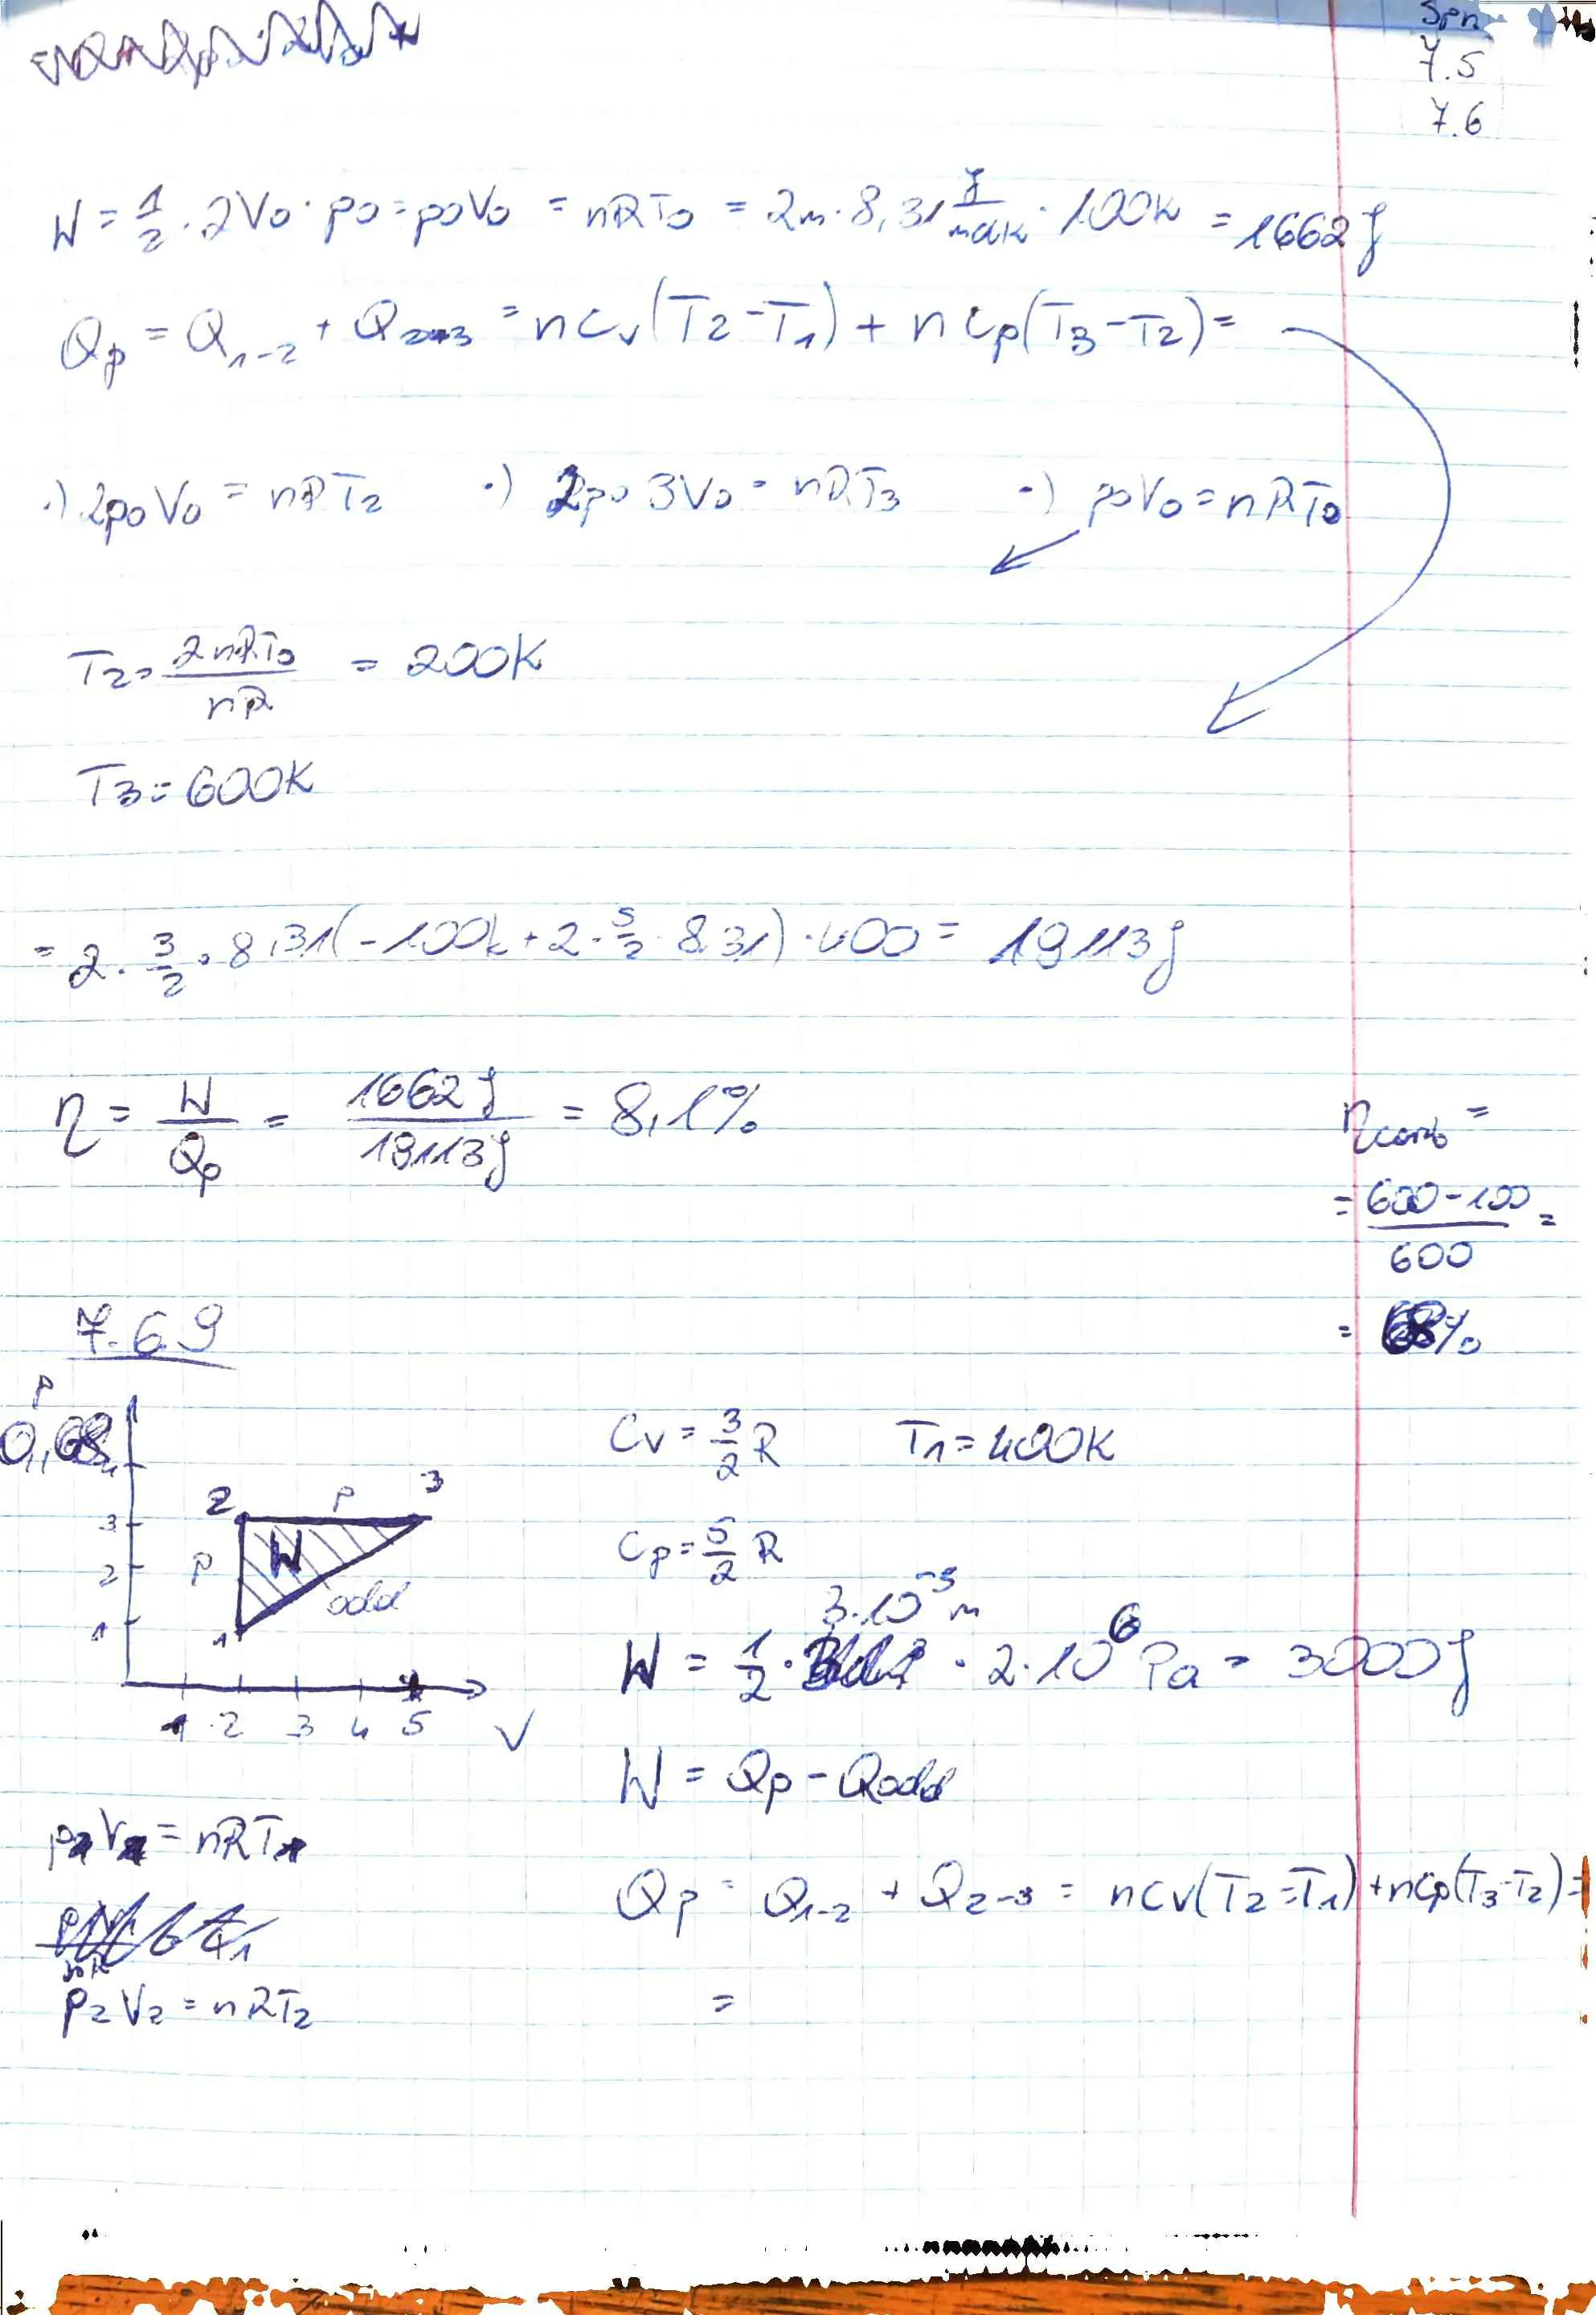 7.5
7.6
W = 1/2 · 2V0 · p0 = p0V0 = nRT0 = 2m · 8,31 J/molK · 100K = 1662 J
Qp = Q1-2 + Q2-3 = nCv(T2-T1) + nCp(T3-T2) =
·) 2p0V0 = nRT2 ·) 2p0 3V0 = nRT3 ·) p0V0 = nRT0
T2 = 2nRT0/nR = 200K
T3 = 600K
= 2 · 3/2 · 8,31(-100K + 2 · 5/2 · 8,31) · 400 = 19113 J
η = W/Qp = 1662 J/19113 J = 8,1%
ηcarb =
= 600-100/600 =
=
7.69
p
4
3
2
1
2 p 3
p W
odd
1
1 2 3 4 5 V
Cv = 3/2 R T1 = 400K
Cp = 5/2 R
3·10^-3 m
W = 1/2 · · 2·10^6 Pa = 3000 J
W = Qp - Qodd
nRT
Qp = Q1-2 + Q2-3 = nCv(T2-T1) + nCp(T3-T2) =
p2V2 = nRT2
=